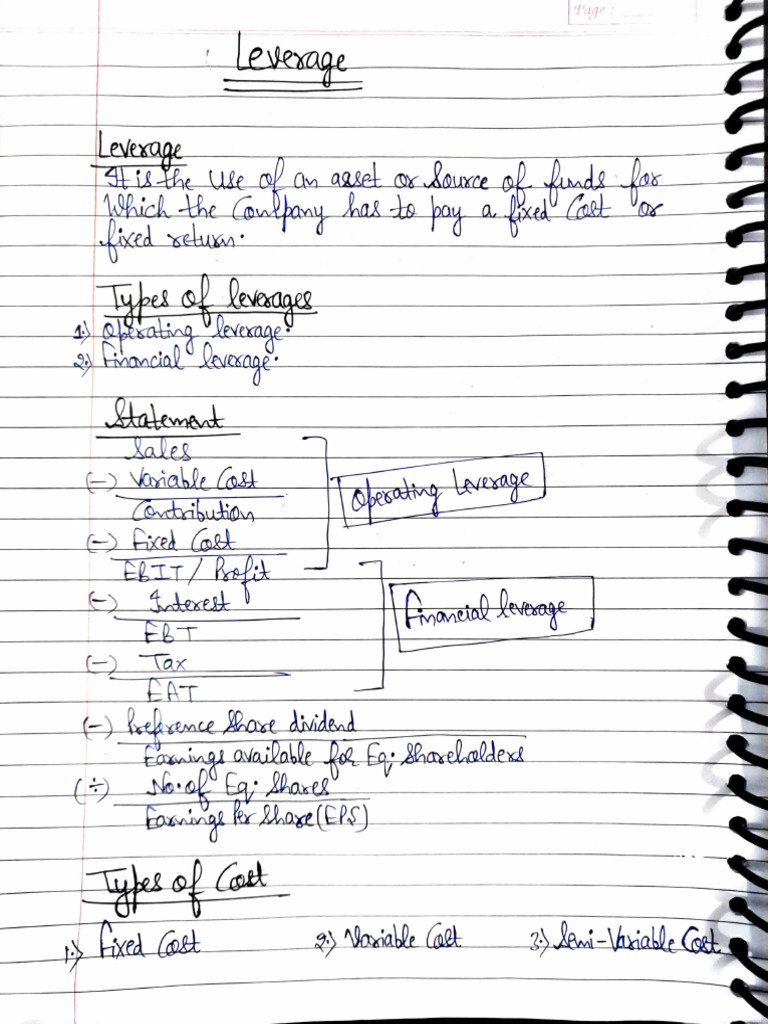 Page :
Leverage
Leverage
It is the use of an asset or source of funds for
which the Company has to pay a fixed Cost or
fixed return.
Types of leverages
1.) Operating leverage.
2.) Financial leverage.
Statement
Sales
(-) Variable Cost
Contribution
(-) Fixed Cost
EBIT / Profit
Operating Leverage
(-) Interest
EBT
(-) Tax
EAT
Financial leverage
(-) Preference Share dividend
Earnings available for Eq. Shareholders
(÷) No. of Eq. Shares
Earnings Per Share (EPS)
Types of Cost
1.) Fixed Cost 2.) Variable Cost 3.) Semi-Variable Cost